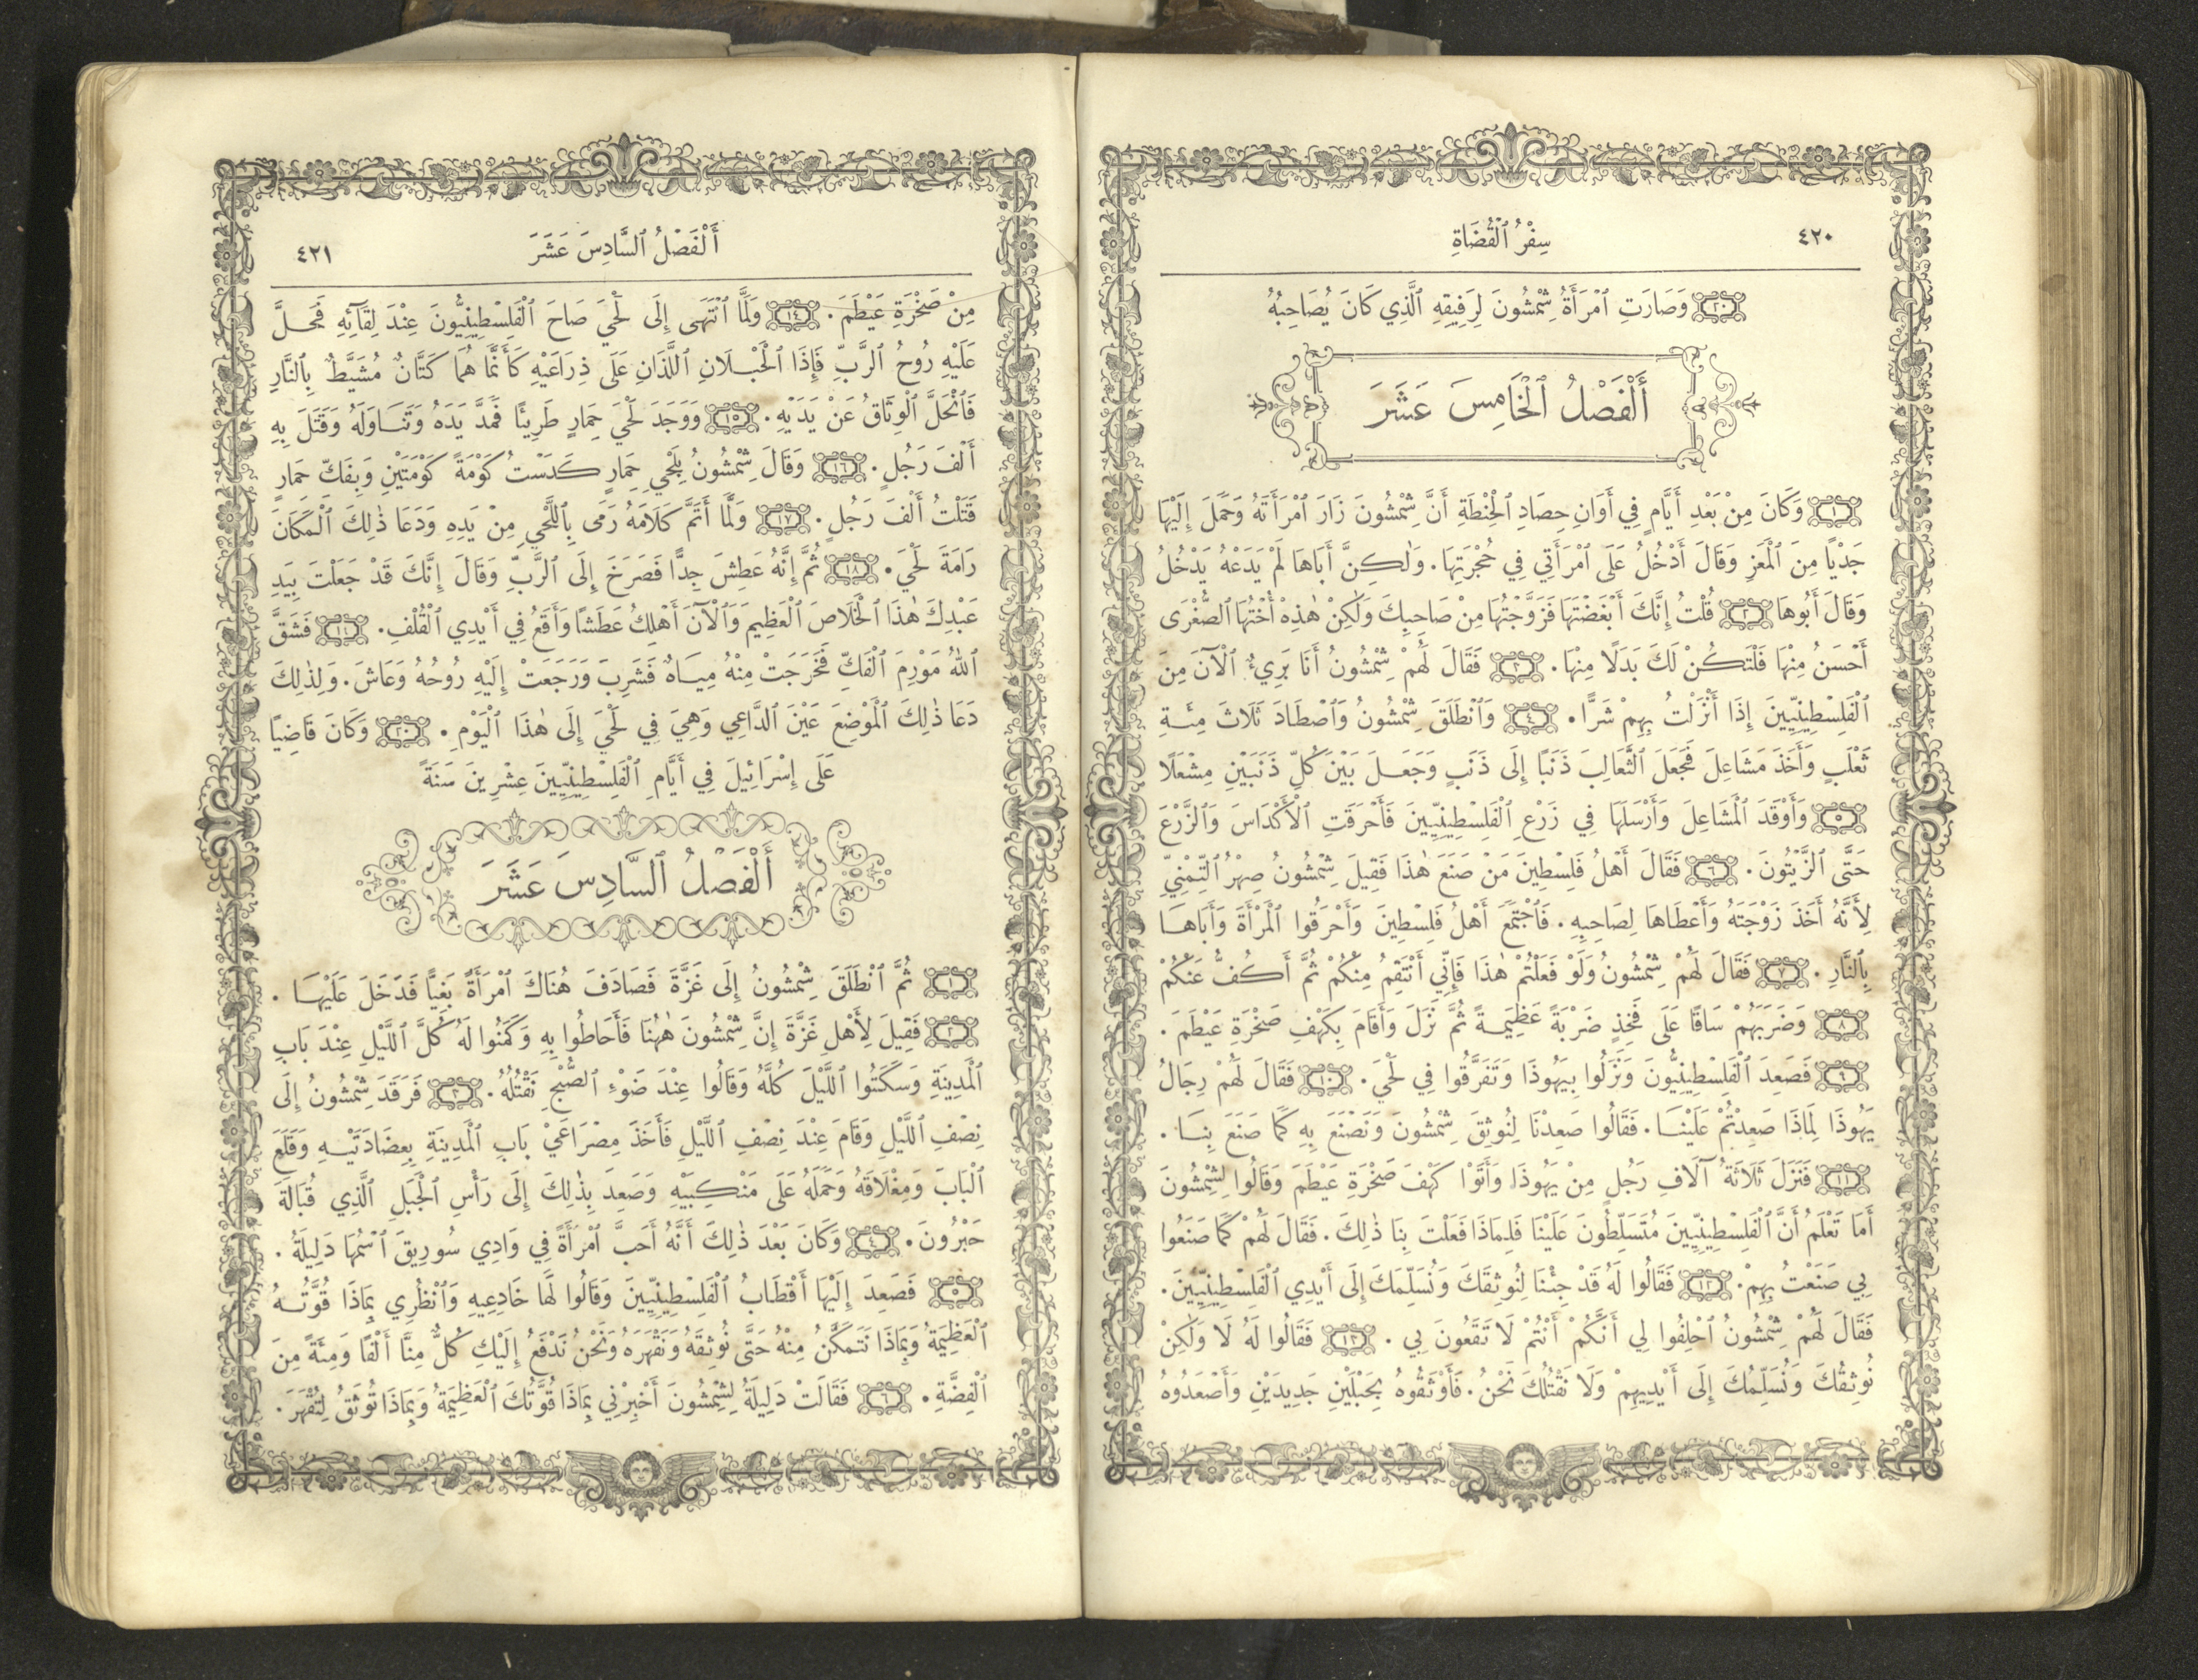 ٤٢٠
سِفْرُ ٱلْقُضَاةِ
٢٠ وَصَارَتِ ٱمْرَأَةُ شِمْشُونَ لِرَفِيقِهِ ٱلَّذِي كَانَ يُصَاحِبُهُ
أَلْفَصْلُ ٱلْخَامِسَ عَشَرَ
١ وَكَانَ مِنْ بَعْدِ أَيَّامٍ فِي أَوَانِ حِصَادِ ٱلْحِنْطَةِ أَنَّ شِمْشُونَ زَارَ ٱمْرَأَتَهُ وَحَمَلَ إِلَيْهَا
جَدْيًا مِنَ ٱلْمَعَزِ وَقَالَ أَدْخُلُ عَلَى ٱمْرَأَتِي فِي حُجْرَتِهَا. وَلٰكِنَّ أَبَاهَا لَمْ يَدَعْهُ يَدْخُلُ
وَقَالَ أَبُوهَا ٢ قُلْتُ إِنَّكَ أَبْغَضْتَهَا فَزَوَّجْتُهَا مِنْ صَاحِبِكَ وَلٰكِنْ هٰذِهْ أُخْتُهَا ٱلصُّغْرَى
أَحْسَنُ مِنْهَا فَلْتَكُنْ لَكَ بَدَلًا مِنْهَا. ٣ فَقَالَ لَهُمْ شِمْشُونُ أَنَا بَرِيءٌ ٱلْآنَ مِنَ
ٱلْفَلِسْطِينِيِّينَ إِذَا أَنْزَلْتُ بِهِمْ شَرًّا. ٤ وَٱنْطَلَقَ شِمْشُونُ وَٱصْطَادَ ثَلَاثَ مِئَةِ
ثَعْلَبٍ وَأَخَذَ مَشَاعِلَ فَجَعَلَ ٱلثَّعَالِبَ ذَنَبًا إِلَى ذَنَبٍ وَجَعَلَ بَيْنَ كُلِّ ذَنَبَيْنِ مِشْعَلًا
٥ وَأَوْقَدَ ٱلْمَشَاعِلَ وَأَرْسَلَهَا فِي زَرْعِ ٱلْفَلِسْطِينِيِّينَ فَأَحْرَقَتِ ٱلْأَكْدَاسَ وَٱلزَّرْعَ
حَتَّى ٱلزَّيْتُونَ. ٦ فَقَالَ أَهْلُ فَلِسْطِينَ مَنْ صَنَعَ هٰذَا فَقِيلَ شِمْشُونُ صِهْرُ ٱلتِّمْنِيِّ
لِأَنَّهُ أَخَذَ زَوْجَتَهُ وَأَعْطَاهَا لِصَاحِبِهِ. فَٱجْتَمَعَ أَهْلُ فَلِسْطِينَ وَأَحْرَقُوا ٱلْمَرْأَةَ وَأَبَاهَا
بِٱلنَّارِ. ٧ فَقَالَ لَهُمْ شِمْشُونُ وَلَوْ فَعَلْتُمْ هٰذَا فَإِنِّي أَنْتَقِمُ مِنْكُمْ ثُمَّ أَكُفُّ عَنْكُمْ
٨ وَضَرَبَهُمْ سَاقًا عَلَى فَخِذٍ ضَرْبَةً عَظِيمَةً ثُمَّ نَزَلَ وَأَقَامَ بِكَهْفِ صَخْرَةِ عَيْطَمَ.
٩ فَصَعِدَ ٱلْفَلِسْطِينِيُّونَ وَنَزَلُوا بِيَهُوذَا وَتَفَرَّقُوا فِي لَحْيَ. ١٠ فَقَالَ لَهُمْ رِجَالُ
يَهُوذَا لِمَاذَا صَعِدْتُمْ عَلَيْنَا. فَقَالُوا صَعِدْنَا لِنُوثِقَ شِمْشُونَ وَنَصْنَعَ بِهِ كَمَا صَنَعَ بِنَا.
١١ فَنَزَلَ ثَلَاثَةُ آلَافِ رَجُلٍ مِنْ يَهُوذَا وَأَتَوْا كَهْفَ صَخْرَةِ عَيْطَمَ وَقَالُوا لِشِمْشُونَ
أَمَا تَعْلَمُ أَنَّ ٱلْفَلِسْطِينِيِّينَ مُتَسَلِّطُونَ عَلَيْنَا فَلِمَاذَا فَعَلْتَ بِنَا ذٰلِكَ. فَقَالَ لَهُمْ كَمَا صَنَعُوا
بِي صَنَعْتُ بِهِمْ. ١٢ فَقَالُوا لَهُ قَدْ جِئْنَا لِنُوثِقَكَ وَنُسَلِّمَكَ إِلَى أَيْدِي ٱلْفَلِسْطِينِيِّينَ.
فَقَالَ لَهُمْ شِمْشُونُ ٱحْلِفُوا لِي أَنَّكُمْ أَنْتُمْ لَا تَقَعُونَ بِي. ١٣ فَقَالُوا لَهُ لَا وَلٰكِنْ
نُوثِقُكَ وَنُسَلِّمُكَ إِلَى أَيْدِيهِمْ وَلَا نَقْتُلُكَ نَحْنُ. فَأَوْثَقُوهُ بِحَبْلَيْنِ جَدِيدَيْنِ وَأَصْعَدُوهُ
أَلْفَصْلُ ٱلسَّادِسَ عَشَرَ
٤٢١
مِنْ صَخْرَةِ عَيْطَمَ. ١٤ وَلَمَّا ٱنْتَهَى إِلَى لَحْيَ صَاحَ ٱلْفَلِسْطِينِيُّونَ عِنْدَ لِقَآئِهِ فَحَلَّ
عَلَيْهِ رُوحُ ٱلرَّبِّ فَإِذَا ٱلْحَبْلَانِ ٱللَّذَانِ عَلَى ذِرَاعَيْهِ كَأَنَّمَا هُمَا كَتَّانٌ مُشَيَّطٌ بِٱلنَّارِ
فَٱنْحَلَّ ٱلْوِثَاقُ عَنْ يَدَيْهِ. ١٥ وَوَجَدَ لَحْيَ حِمَارٍ طَرِيئًا فَمَدَّ يَدَهُ وَتَنَاوَلَهُ وَقَتَلَ بِهِ
أَلْفَ رَجُلٍ. ١٦ وَقَالَ شِمْشُونُ بِلَحْيِ حِمَارٍ كَدَسْتُ كَوْمَةً كَوْمَتَيْنِ وَبِفَكِّ حِمَارٍ
قَتَلْتُ أَلْفَ رَجُلٍ. ١٧ وَلَمَّا أَتَمَّ كَلَامَهُ رَمَى بِٱللَّحْيِ مِنْ يَدِهِ وَدَعَا ذٰلِكَ ٱلْمَكَانَ
رَامَةَ لَحْيَ. ١٨ ثُمَّ إِنَّهُ عَطِشَ جِدًّا فَصَرَخَ إِلَى ٱلرَّبِّ وَقَالَ إِنَّكَ قَدْ جَعَلْتَ بِيَدِ
عَبْدِكَ هٰذَا ٱلْخَلَاصَ ٱلْعَظِيمَ وَٱلْآنَ أَهْلِكُ عَطَشًا وَأَقَعُ فِي أَيْدِي ٱلْقُلْفِ. ١٩ فَشَقَّ
ٱللهُ مَوْرِمَ ٱلْفَكِّ فَخَرَجَتْ مِنْهُ مِيَاهٌ فَشَرِبَ وَرَجَعَتْ إِلَيْهِ رُوحُهُ وَعَاشَ. وَلِذٰلِكَ
دَعَا ذٰلِكَ ٱلْمَوْضِعَ عَيْنَ ٱلدَّاعِي وَهِيَ فِي لَحْيَ إِلَى هٰذَا ٱلْيَوْمِ. ٢٠ وَكَانَ قَاضِيًا
عَلَى إِسْرَائِيلَ فِي أَيَّامِ ٱلْفَلِسْطِينِيِّينَ عِشْرِينَ سَنَةً
أَلْفَصْلُ ٱلسَّادِسَ عَشَرَ
١ ثُمَّ ٱنْطَلَقَ شِمْشُونُ إِلَى غَزَّةَ فَصَادَفَ هُنَاكَ ٱمْرَأَةً بَغِيًّا فَدَخَلَ عَلَيْهَا.
٢ فَقِيلَ لِأَهْلِ غَزَّةَ إِنَّ شِمْشُونَ هٰهُنَا فَأَحَاطُوا بِهِ وَكَمَنُوا لَهُ كُلَّ ٱللَّيْلِ عِنْدَ بَابِ
ٱلْمَدِينَةِ وَسَكَتُوا ٱللَّيْلَ كُلَّهُ وَقَالُوا عِنْدَ ضَوْءِ ٱلصُّبْحِ نَقْتُلُهُ. ٣ فَرَقَدَ شِمْشُونُ إِلَى
نِصْفِ ٱللَّيْلِ وَقَامَ عِنْدَ نِصْفِ ٱللَّيْلِ فَأَخَذَ مِصْرَاعَيْ بَابِ ٱلْمَدِينَةِ بِعِضَادَتَيْهِ وَقَلَعَ
ٱلْبَابَ وَمِغْلَاقَهُ وَحَمَلَهُ عَلَى مَنْكِبَيْهِ وَصَعِدَ بِذٰلِكَ إِلَى رَأْسِ ٱلْجَبَلِ ٱلَّذِي قُبَالَةَ
حَبْرُونَ. ٤ وَكَانَ بَعْدَ ذٰلِكَ أَنَّهُ أَحَبَّ ٱمْرَأَةً فِي وَادِي سُورِيقَ ٱسْمُهَا دَلِيلَةُ.
٥ فَصَعِدَ إِلَيْهَا أَقْطَابُ ٱلْفَلِسْطِينِيِّينَ وَقَالُوا لَهَا خَادِعِيهِ وَٱنْظُرِي بِمَاذَا قُوَّتُهُ
ٱلْعَظِيمَةُ وَبِمَاذَا نَتَمَكَّنُ مِنْهُ حَتَّى نُوثِقَهُ وَنَقْهَرَهُ وَنَحْنُ نَدْفَعُ إِلَيْكِ كُلٌّ مِنَّا أَلْفًا وَمِئَةً مِنَ
ٱلْفِضَّةِ. ٦ فَقَالَتْ دَلِيلَةُ لِشِمْشُونَ أَخْبِرْنِي بِمَاذَا قُوَّتُكَ ٱلْعَظِيمَةُ وَبِمَاذَا تُوثَقُ لِتُقْهَرَ.